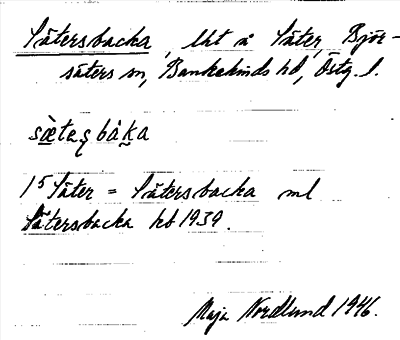 Sätersbacka, lht å Säter, Björ-
säters sn, Bankekinds hd, Östg. l.
sæ̀teʂbàka
1⁵ Säter = Sätersbacka ml
Sätersbacka hb 1939.
Maja Nordlund 1946.